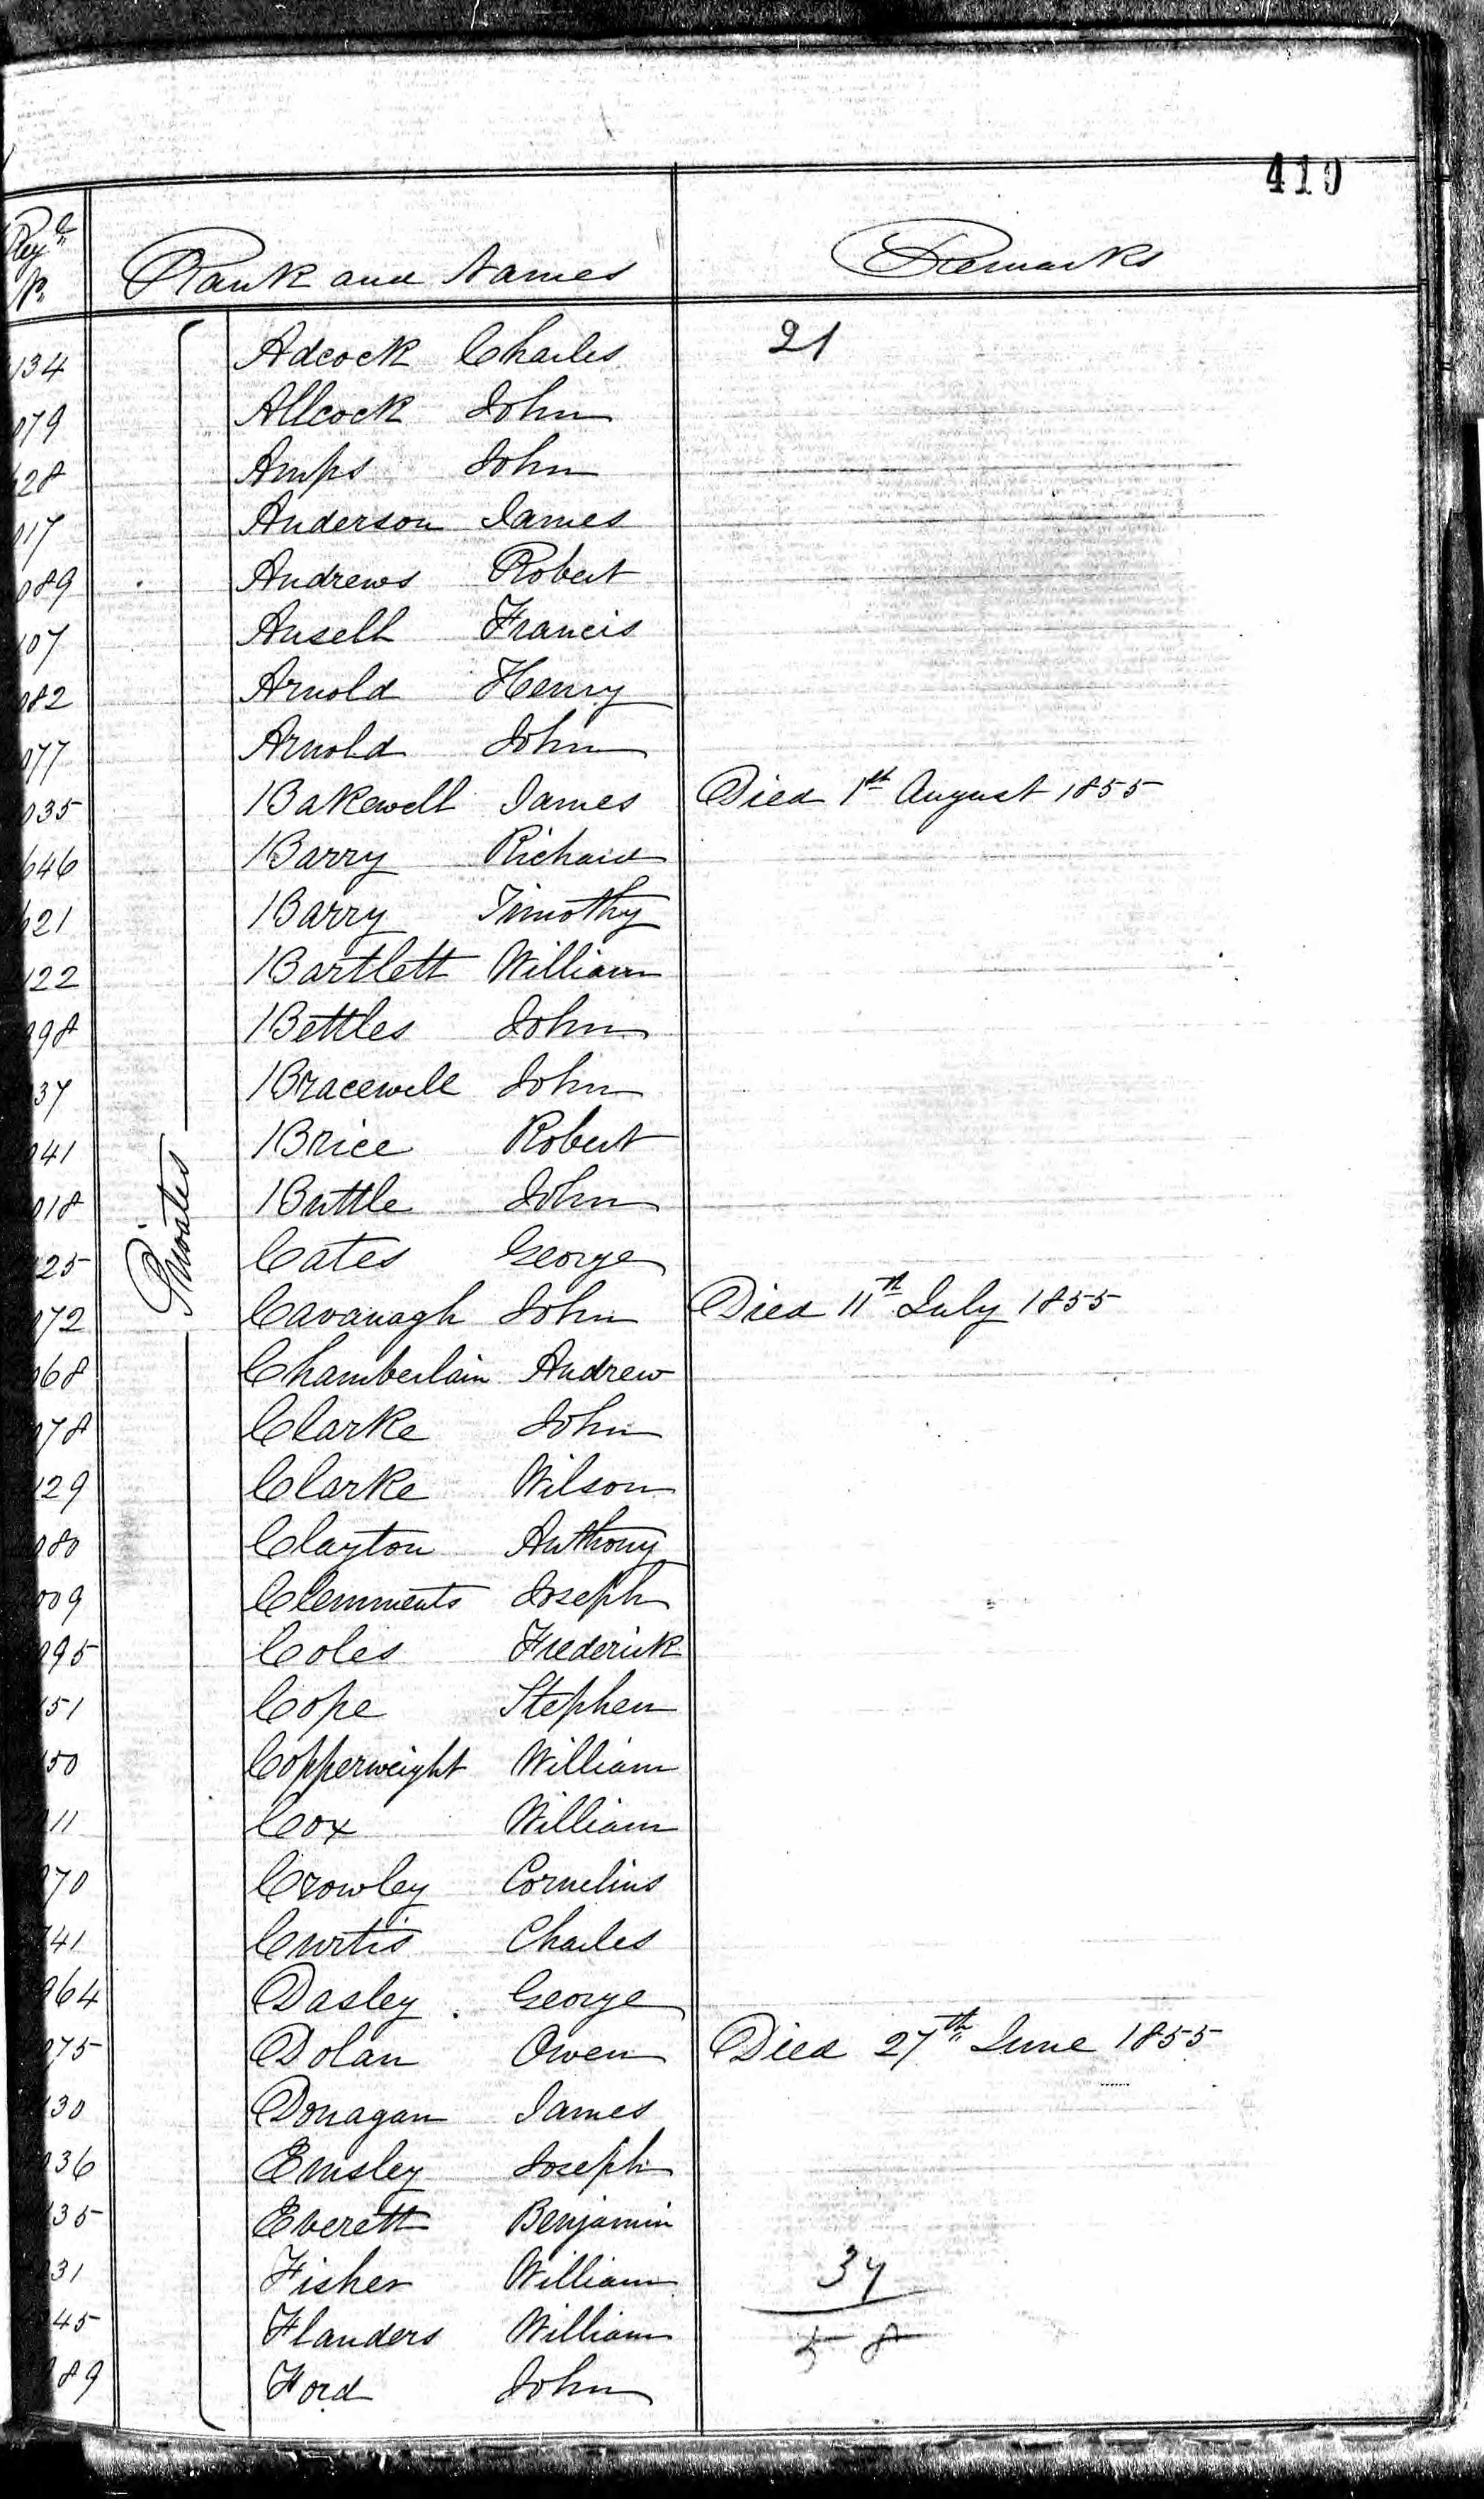 410
Regl No. Rank and Names Remarks
134 Adcock Charles 21
079 Allcock John
628 Amps John
017 Anderson James
089 Andrews Robert
107 Ansell Francis
082 Arnold Henry
077 Arnold John
035 Bakewell James Died 1st August 1855
646 Barry Richard
621 Barry Timothy
122 Bartlett William
998 Bettles John
37 Bracewell John
041 Brice Robert
018 Buttle John
Privates
25 Cates George
072 Cavanagh John Died 11th July 1855
068 Chamberlain Andrew
078 Clarke John
129 Clarke Wilson
080 Clayton Anthony
009 Clemments Joseph
095 Coles Frederick
151 Cope Stephen
150 Copperweight William
11 Cox William
970 Crowley Cornelius
741 Curtis Charles
964 Dasley George
075 Dolan Owen Died 27th June 1855
130 Donagan James
036 Emsley Joseph
135 Everett Benjamin
31 Fisher William 37
45 Flanders William 58
89 Ford John